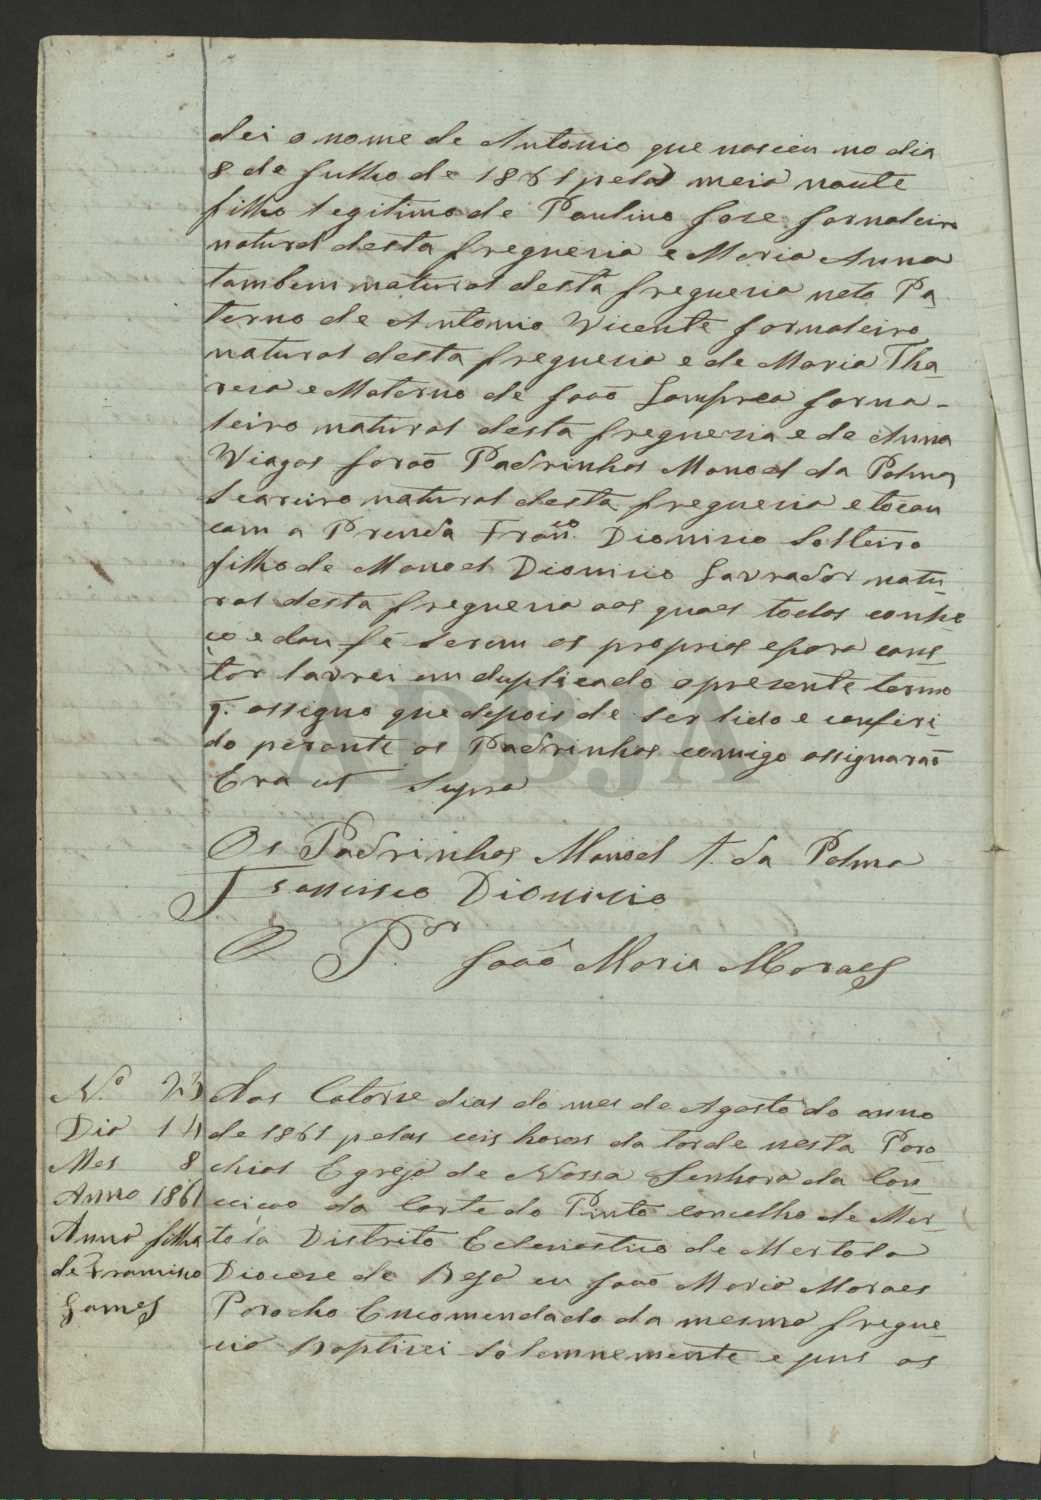 dei o nome de Antonio que nasceu no dia
8 de Julho de 1861 pela meia noute
filho legitimo de Paulino Jose Jornaleiro
natural desta freguesia e Maria Anna
tambem natural desta freguesia neto Pa
terno de Antonio Vicente Jornaleiro
natural desta freguesia e de Maria The
resa e Materno de João Lamprea Jorna-
leiro natural desta freguesia e de Anna
Viegas forão Padrinhos Manoel da Palma
Seareiro natural desta freguesia e tocou
com a Prenda Fran.co Dionisio Solteiro
filho de Manoel Dionisio Lavrador natu-
ral desta freguesia aos quaes todos conhe
ço e dou fé serem os proprios e para cons
tar lavrei em duplicado o presente termo
q. assigno que depois de ser lido e conferi
do perante os Padrinhos comigo assignarão
Era ut Supra
Os Padrinhos Manoel A. da Palma
Francisco Dionisio
O P.or João Maria Moraes
N.o 23
Dia 14
Mes 8
Anno 1861
Anna filha
de Francisco
Gomes
Aos Catorse dias do mes de Agosto do anno
de 1861 pelas seis horas da tarde nesta Paro
chial Egreja de Nossa Senhora da Con
ceicao da Corte do Pinto concelho de Mer
tola Distrito Eclesiastico de Mertola
Diocese de Beja eu João Maria Moraes
Parocho Encomendado da mesma fregue-
sia Baptisei Solemnemente e pus os
ADBJA